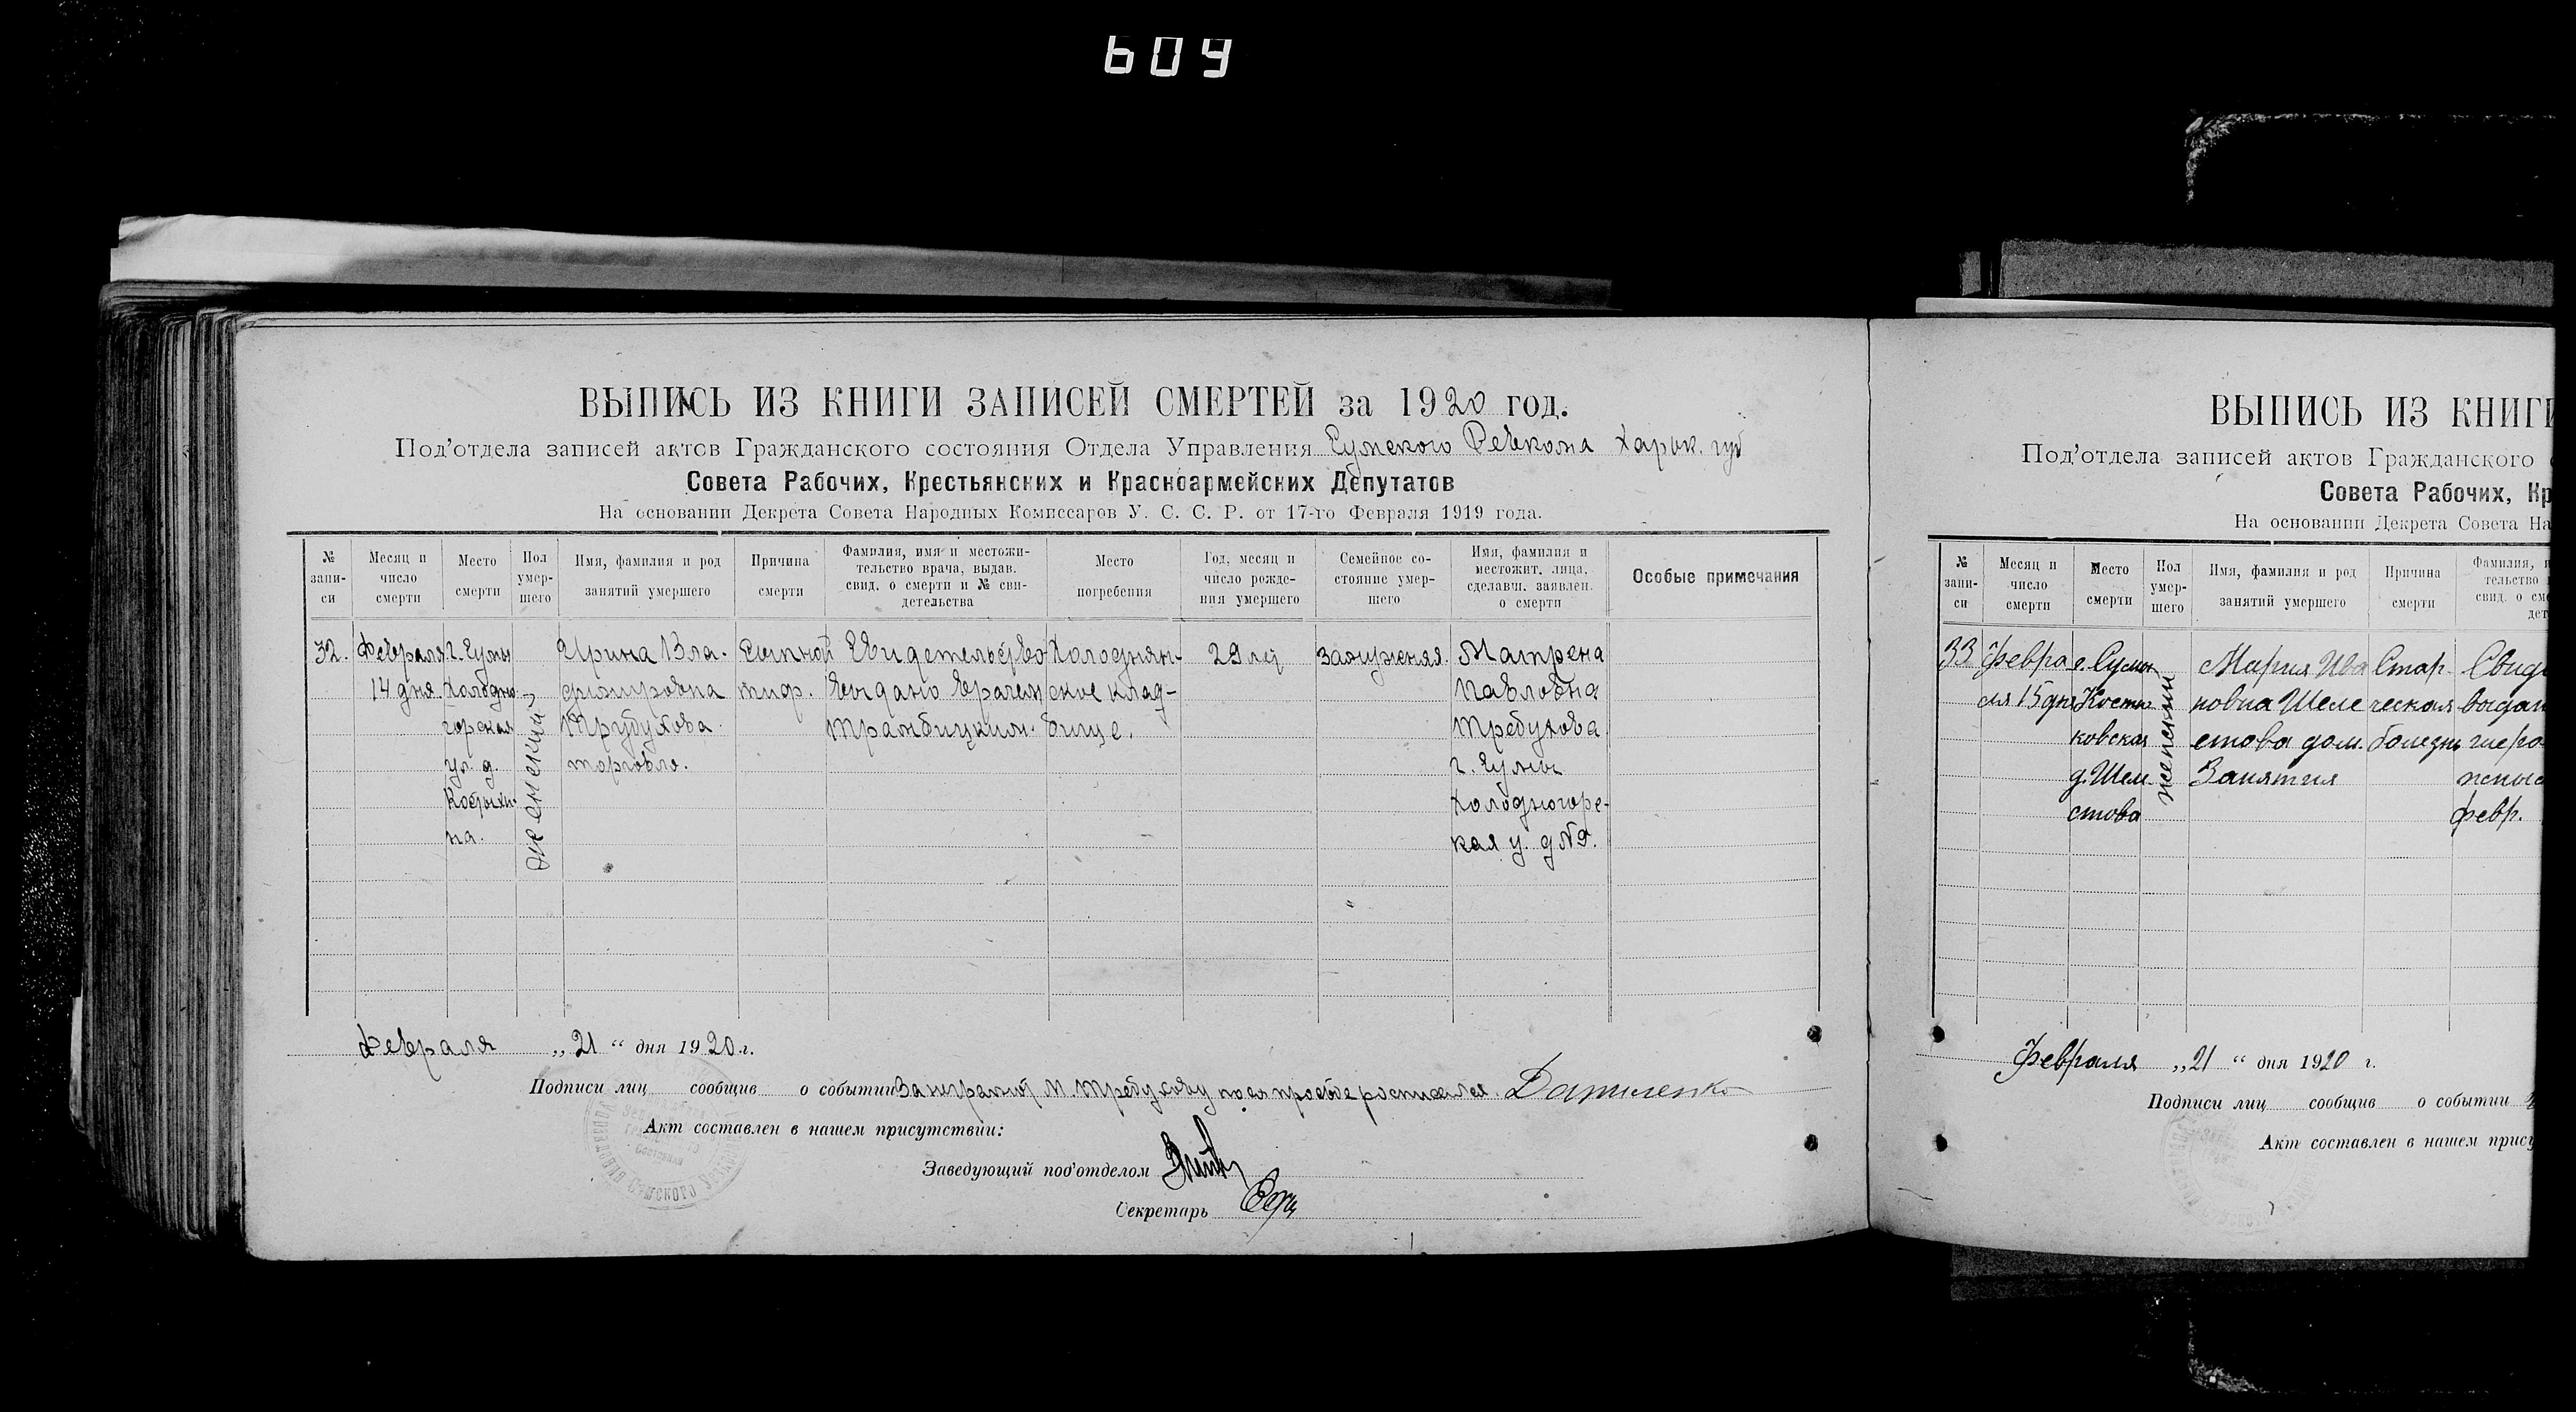 609
ВЫПИСЬ ИЗ КНИГИ ЗАПИСЕЙ СМЕРТЕЙ за 1920 год.
Под'отдела записей актов Гражданского состояния Отдела Управления Сумского Ревкома Харьк. губ
Совета Рабочих, Крестьянских и Красноармейских Депутатов
На основании Декрета Совета Народных Комиссаров У. С. С. Р. от 17-го Февраля 1919 года.
№ запи- си
Месяц и число смерти
Место смерти
Пол умер- шего
Имя, фамилия и род занятий умершего
Причина смерти
Фамилия, имя и местожи- тельство врача, выдав. свид. о смерти и № сви- детельства
Место погребения
Год, месяц и число рожде- ния умершего
Семейное со- стояние умер- шего
Имя, фамилия и местожит. лица, сделавш. заявлен. о смерти
Особые примечания
32.
Февраля
14 дня.
г. Сумы
Холодно-
горская
ул. д.
на.
женский
Ирина Вла-
димировна
Трубухова
торговля.
Сыпной
тиф.
Свидетельство
выдано врачем
Трамбицким.
Холоднян-
ское клад-
бище.
29 лет
Замужняя.
Матрена
Павловна
Требухова
г. Сумы
Холодногорс-
кая у. д №9.
Февраля „21“ дня 1920 г.
Подписи лиц сообщив о событии За неграмот М. Требухову по ея просьбе росписался. Даниленко
Акт составлен в нашем присутствии:
Заведующий под'отделом
Секретарь
ВЫПИСЬ ИЗ КНИГИ
Под'отдела записей актов Гражданского
Совета Рабочих, Кр
На основании Декрета Совета На
№ запи- си
Месяц и число смерти
Место смерти
Пол умер- шего
Имя, фамилия и род занятий умершего
Причина смерти
Фамилия, и
тельство
свид. о сме
дет
33
Февра
ля 15 дня
г. Сумы
ковская
д. Шеле
стова
женский
Мария Ива
новна Шеле
стова дом.
Занятия
Стар
ческая
болезнь
Свид
выдан
февр.
Февраля „21“ дня 1920 г.
Подписи лиц сообщив о событии
Акт составлен в нашем прису